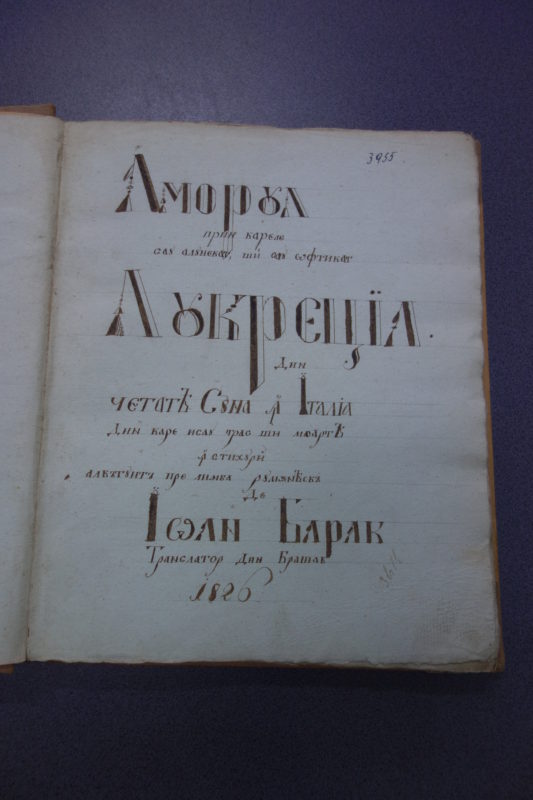 3955
Аморꙋл
прин кареле
сау алꙋнекат, ши сау ѡфтикат
Лꙋкреция.
Дин
четатѣ Сꙋна ꙟ Італіа
Дин каре исау трас ши моартѣ
ꙟ стихурй
алкѣтуитъ пре лимба румѫнѣскъ
Де
Іѡан Барак
Транслатор дин Брашѡв
1826